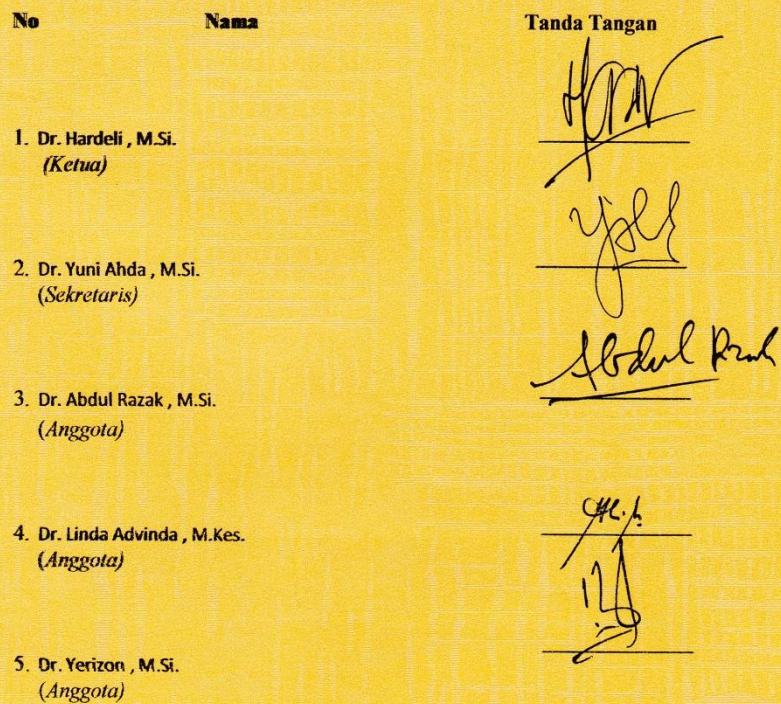 No Nama Tanda Tangan
1. Dr. Hardeli , M.Si.
(Ketua)
2. Dr. Yuni Ahda , M.Si.
(Sekretaris)
Abdul Razak
3. Dr. Abdul Razak , M.Si.
(Anggota)
4. Dr. Linda Advinda , M.Kes.
(Anggota)
5. Dr. Yerizon , M.Si.
(Anggota)